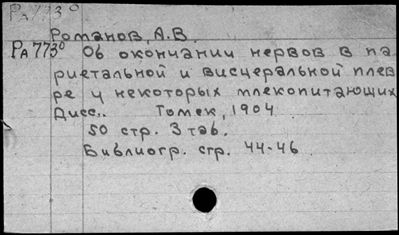 РА773⁰
Романов, А.В.
РА773⁰ Об окончании нервов в па
риетальной и висцеральной плев
ре у некоторых млекопитающих
Дисс.. Томск, 1904
50 стр. 3 таб.
Библиогр. стр. 44-46